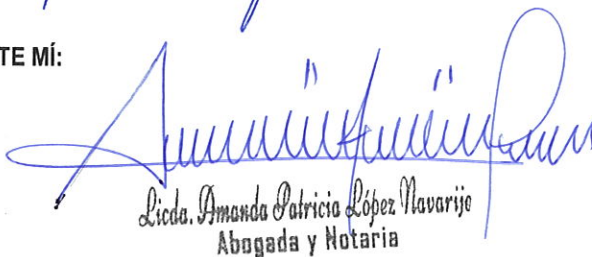 TE MÍ:
Licda. Amanda Patricia López Navarijo
Abogada y Notaria